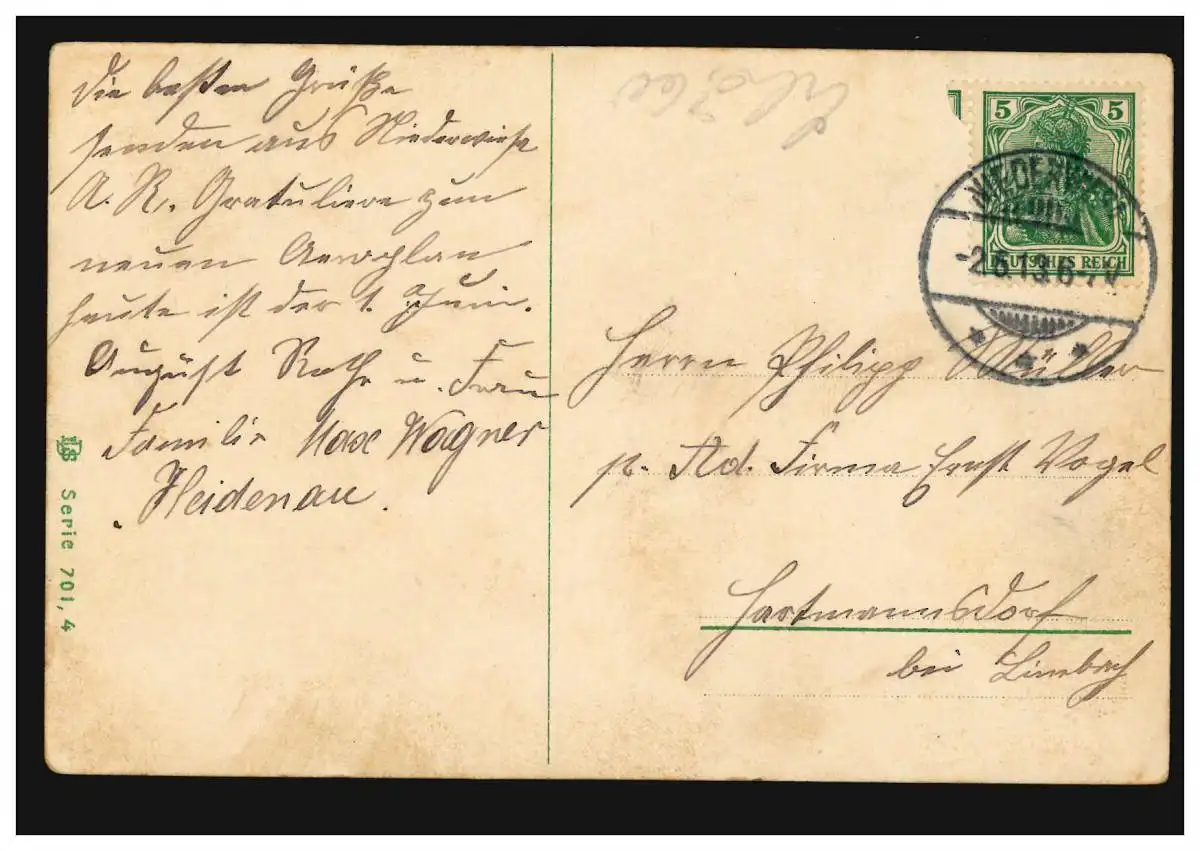 Die besten Grüße
senden aus Niederwiesa
A. R. Gratuliere zum
neuen Aeroplan
heute ist der 1. Juni.
August Rothe u. Frau
Familie Max Wagner
Heidenau.
Serie 701, 4
5 5
DEUTSCHES REICH
NIEDERWIESA
-2.6.13.6-7V
Herrn Philipp Müller
p. Ad. Firma Ernst Vogel
Hartmannsdorf
bei Limbach